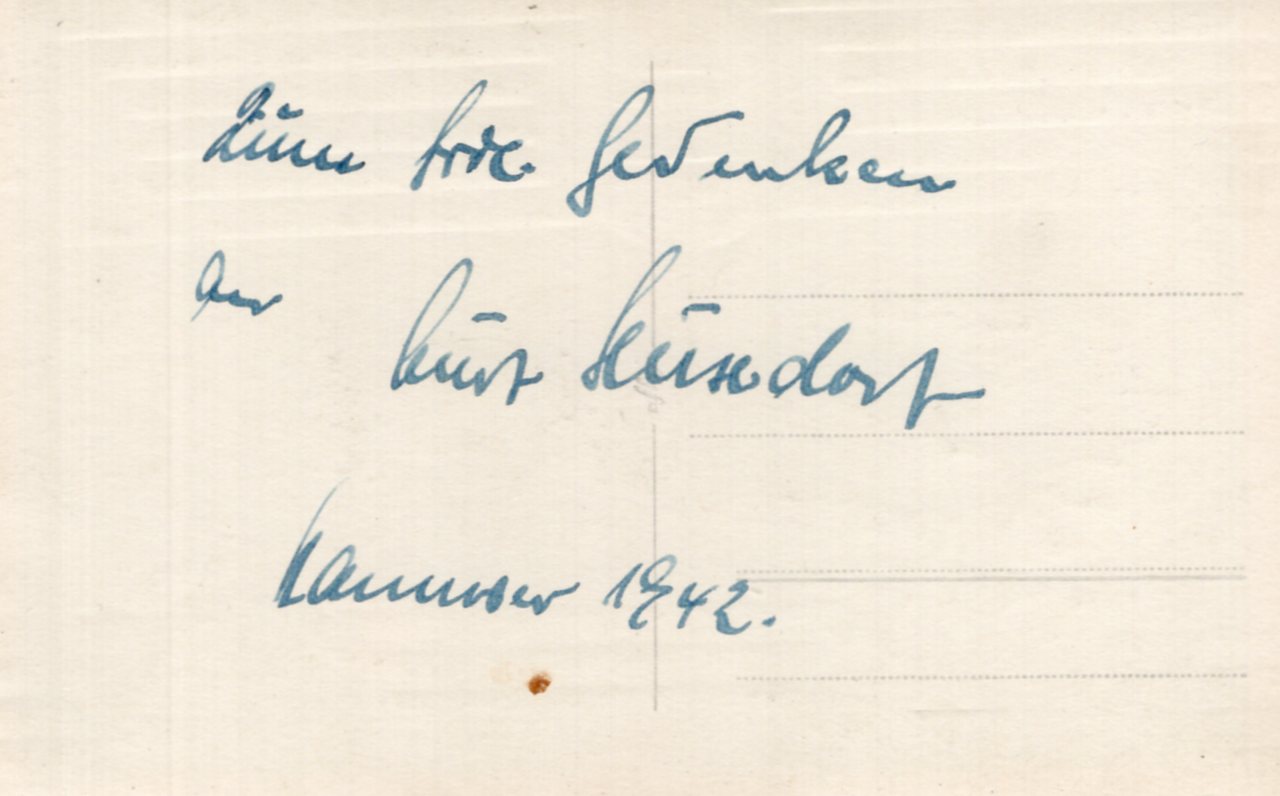 Zum frdl. Gedenken
an
Kurt
Hannover 1942.